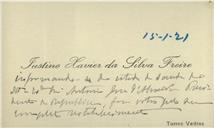 15-1-21
Justino Xavier da Silva Freire
informando-se do estado de saude do
Antonio José d'Almeida
da Republica, faz votos pelo seu
completo restabelecimento
Torres Vedras